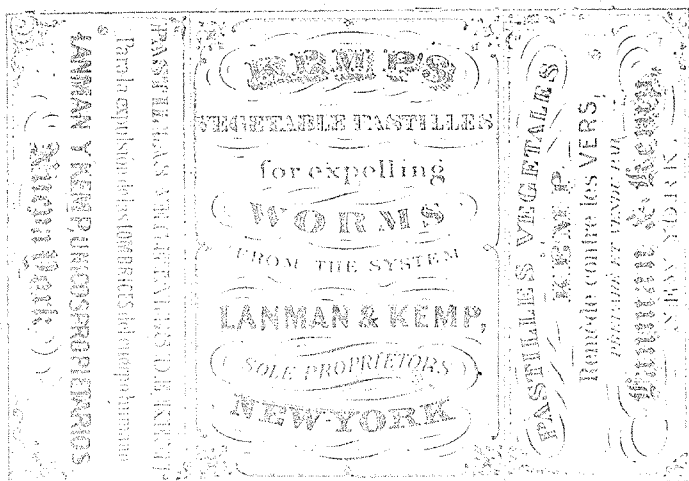 PASTILLAS VEGETALES DE KEMP
Para la expulsion de las LOMBRICES del cuerpo humano
LANMAN Y KEMP, UNICOS PROPIETARIOS
Nueva York
KEMP'S
VEGETABLE PASTILLES
for expelling
WORMS
FROM THE SYSTEM
LANMAN & KEMP,
SOLE PROPRIETORS
NEW-YORK
PASTILLES VEGETALES
KEMP
Remède contre les VERS,
PREPARÉ ET VENDU PAR
Lanman & Kemp,
NEW YORK.